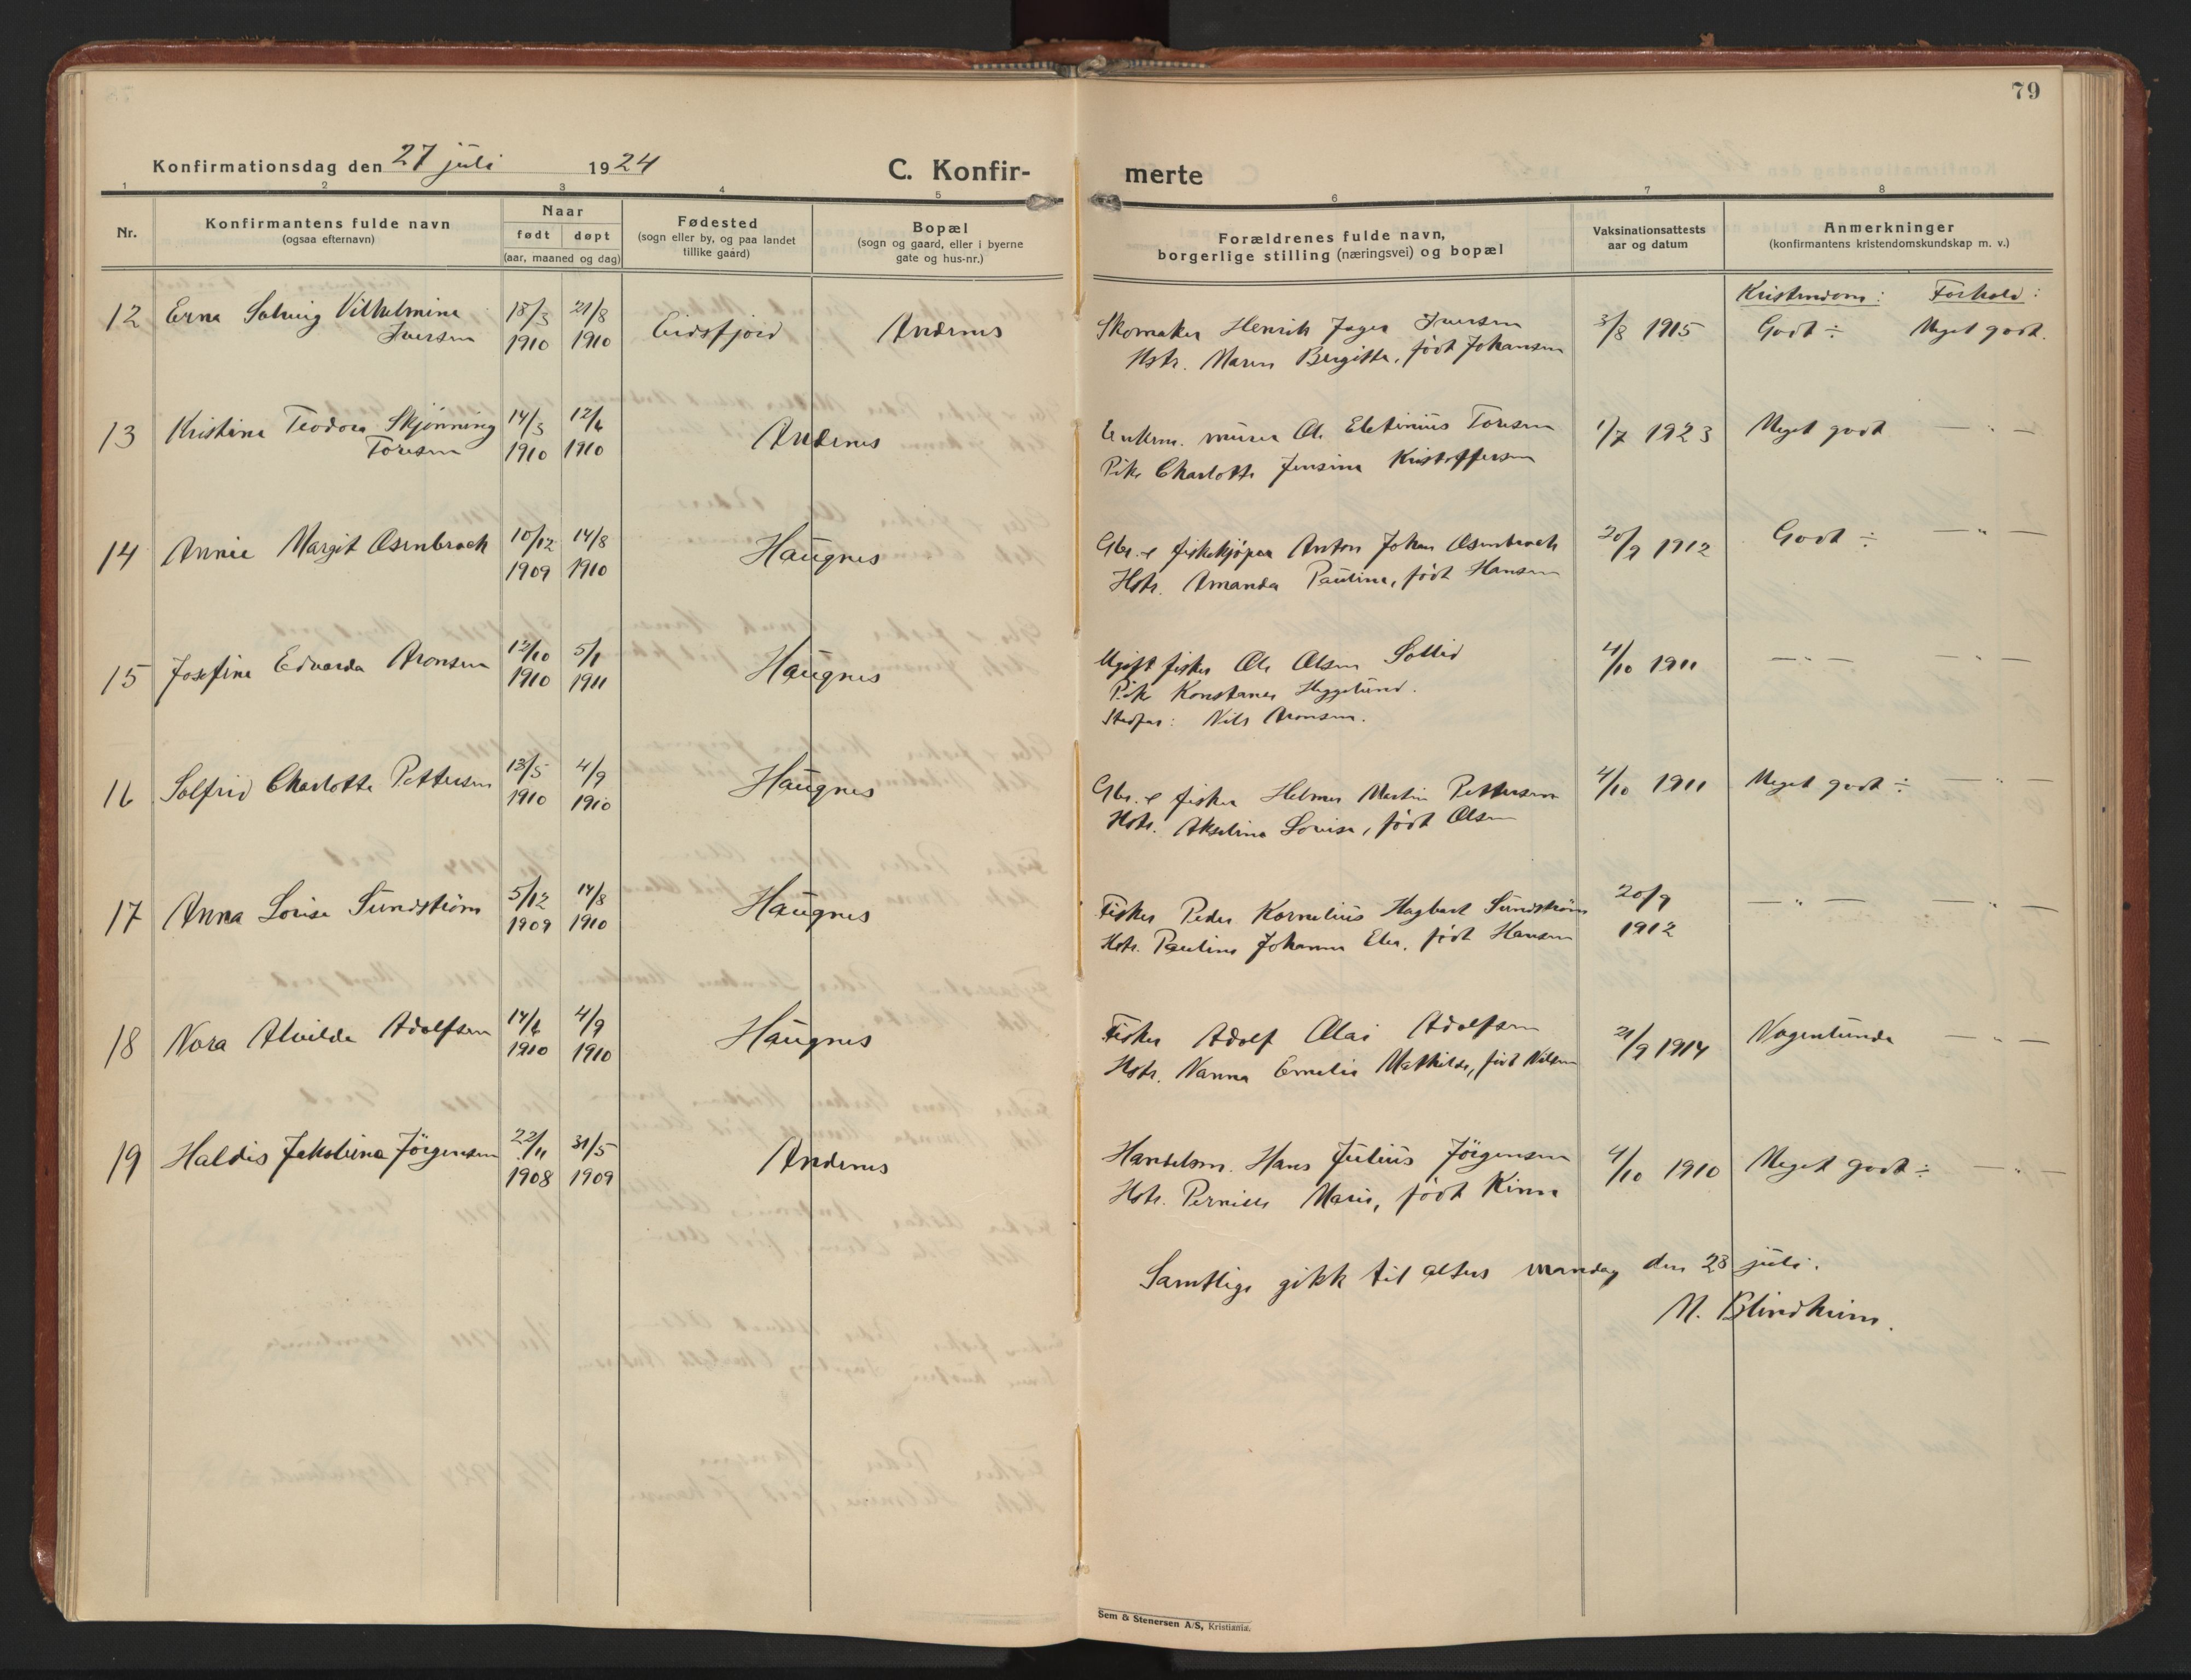 79
Konfirmationsdag den 27 juli 1924
C. Konfir-
merte
1 2 3 4 5 6 7 8
Nr.
Konfirmantens fulde navn
(ogsaa efternavn)
Naar
født døpt
(aar, maaned og dag)
Fødested
(sogn eller by, og paa landet
tillike gaard)
Bopæl
(sogn og gaard, eller i byerne
gate og hus-nr.)
Forældrenes fulde navn,
borgerlige stilling (næringsvei) og bopæl
Vaksinationsattests
aar og datum
Anmerkninger
(konfirmantens kristendomskundskap m. v.)
Kristendom: Forhold:
12 Erna Solveig Vilhelmine
Iversen
18/3 1910
21/8 1910
Eidsfjord
Andenes
Skomaker Henrik Jager Iversen
Hstr. Maren Bergitte, født Johansen
3/8 1915
Godt ÷
Meget godt.
13 Kristine Teodora Skjönning
Toresen
14/3 1910
12/6 1910
Andenes
Enkem. murer Ole Eletinius Toresen
Pike Charlotte Jensine Kristoffersen
1/7 1923
Meget godt
— " —
14 Annie Margit Osenbroch
10/12 1909
14/8 1910
Haugnes
Gbr. & fiskekjöper Anton Johan Osenbroch
Hstr. Amanda Pauline, født Hansen
20/9 1912
Godt ÷
— " —
15 Josefine Edvarda Aronsen
12/10 1910
5/1 1911
Haugnes
Ugift fisker Ole Olsen Sollid
Pike Konstanse Heggelund.
Stedfar: Nils Aronsen.
4/10 1911
— " —
— " —
16 Solfrid Charlotte Pettersen
13/5 1910
4/9 1910
Haugnes
Gbr. & fisker Helmer Martin Pettersen
Hstr. Akseline Lovise, født Olsen
4/10 1911
Meget godt ÷
— " —
17 Anna Lovise Sundström
5/12 1909
14/8 1910
Haugnes
Fisker Peder Kornelius Hagbart Sundström
Hstr. Pauline Johanna Elea, født Hansen
20/9
1912
— " —
— " —
18 Nora Alvilde Adolfsen
14/6 1910
4/9 1910
Haugnes
Fisker Adolf Olai Adolfsen
Hstr. Nanna Emelie Mathilde, født Nilsen
21/9 1914
Nogenlunde
— " —
19 Haldis Jakobine Jörgensen
22/11 1908
31/5 1909
Andenes
Handelsm. Hans Julius Jörgensen
Hstr. Pernille Marie, født Kinn
4/10 1910
Meget godt ÷
— " —
Samtlige gikk til alters mandag den 28 juli.
N. Blindheim.
Sem & Stenersen A/S, Kristiania.